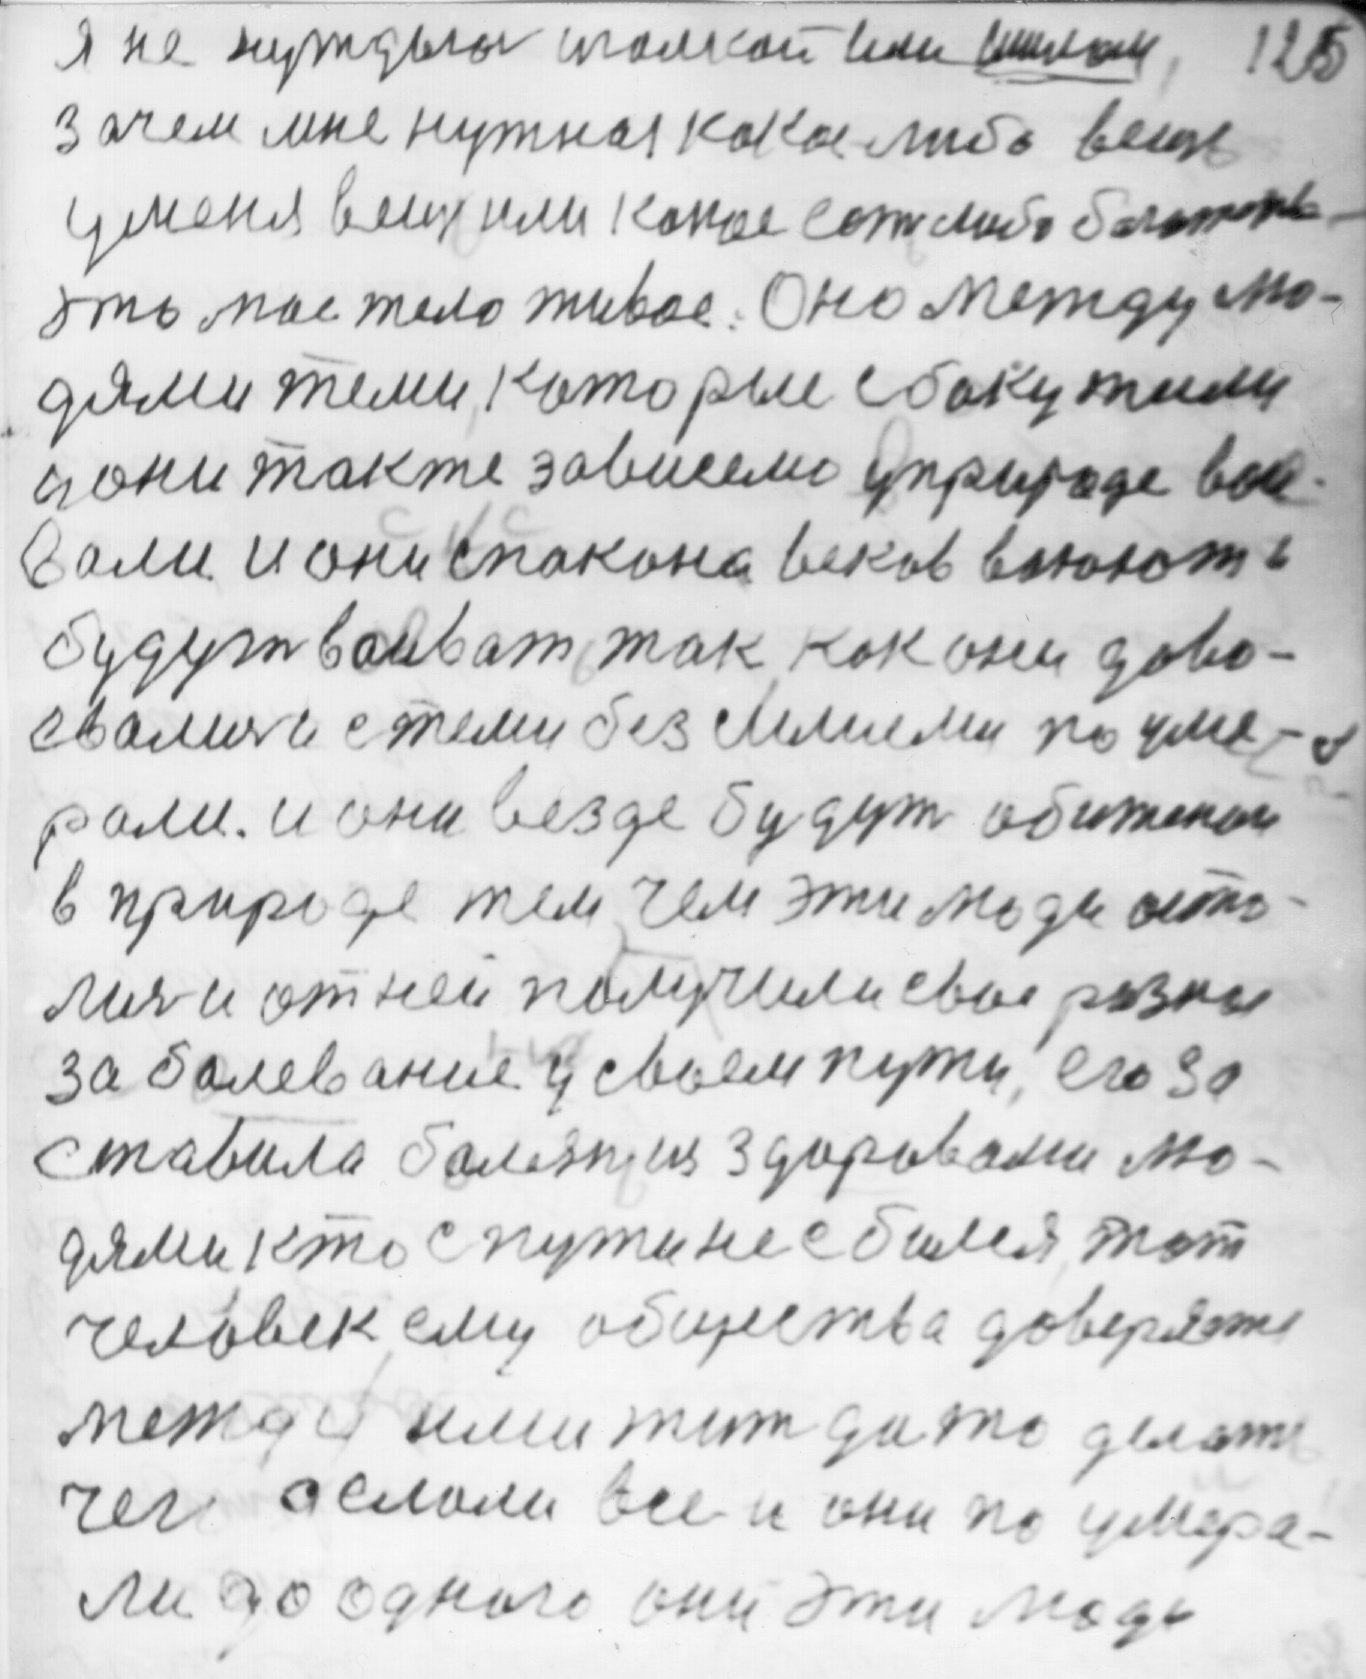 я не нуждаюсь иголкой или шилом, 125
зачем мне нужная какое-либо вещь
у меня вещь или какое есть либо богатство
это мое тело живое. Оно между лю-
дями теми, которые с боку жили
и они также зависемо у природе вое-
вали. и они споконе веков воюют и
будут воевать, так как они дово-
евались и с теми без силием по уме-
рали. и они везде будут обижеными
в природе тем, чем эти люди оста-
лися и от ней получили свое разное
заболевание у своем пути, его за
ставила болезнь из здоровыми лю-
дями кто с пути не сбился, тот
человек ему общества доверяет
между ними жить да то делать
чего делали все и они по умера-
ли до одного они эти люди